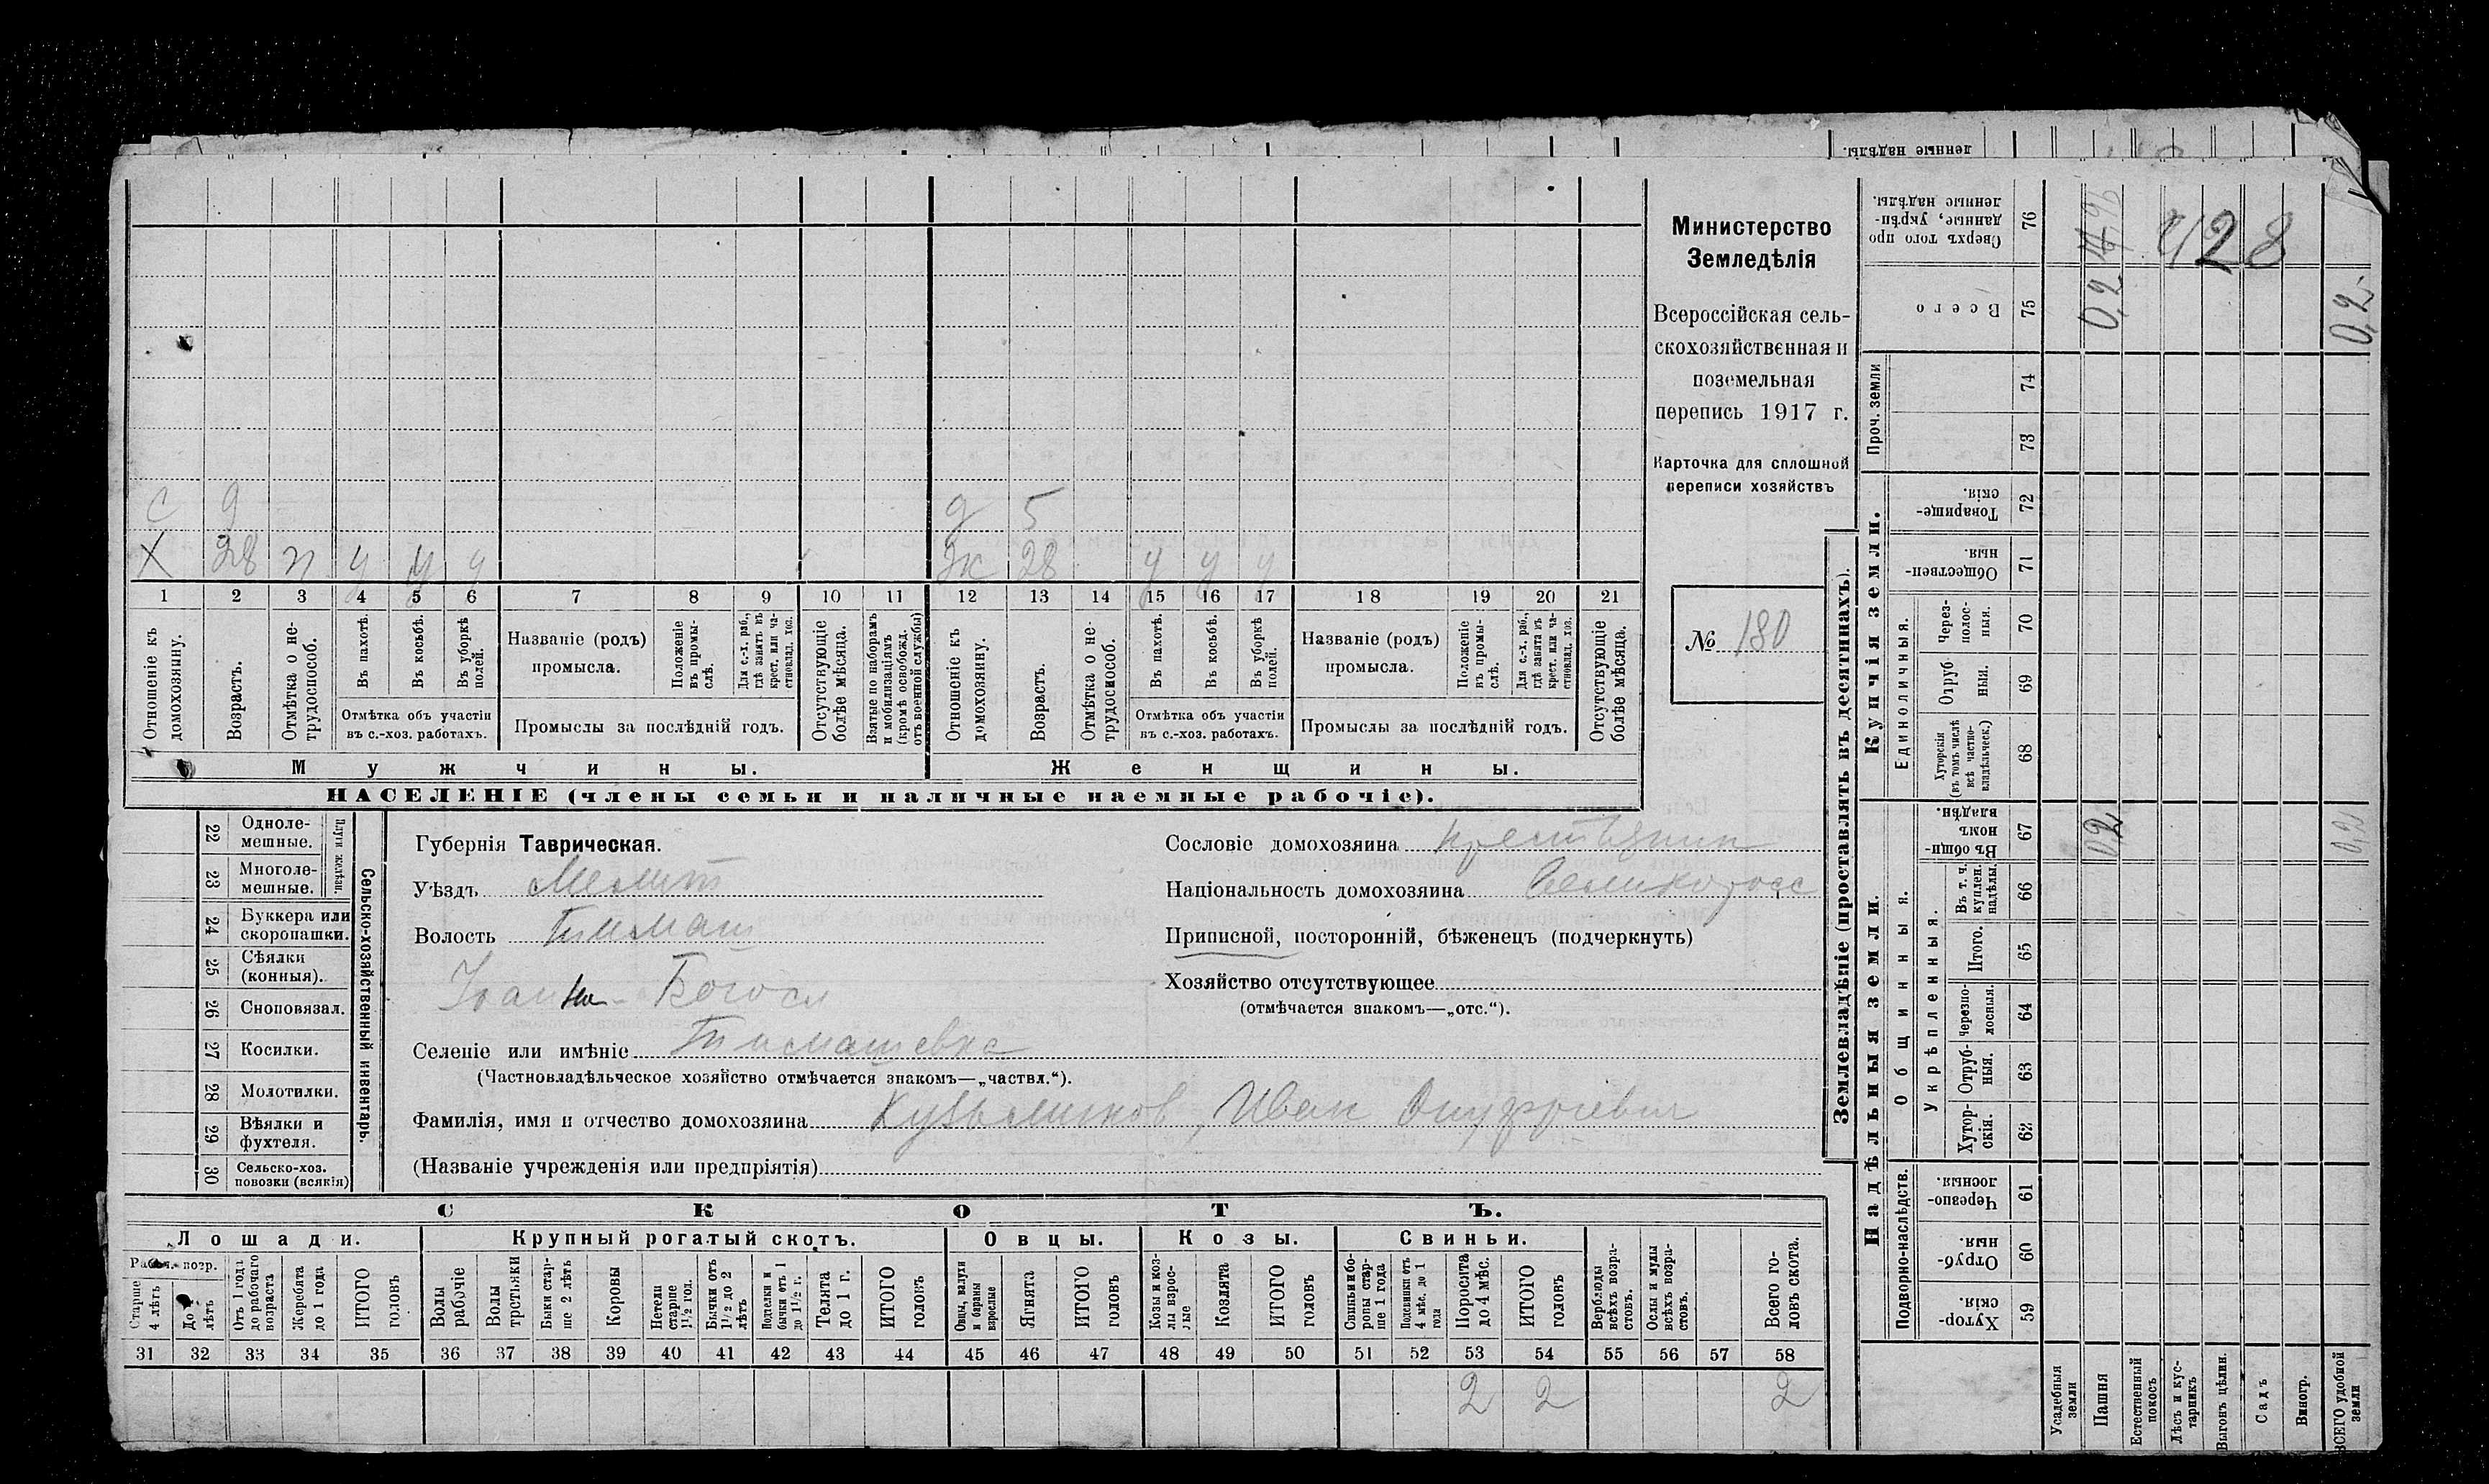 денные надѣлы.
с 9 д 5
X 28 п у у у ж 28 у у у
1 2 3 4 5 6 7 8 9 10 11 12 13 14 15 16 17 18 19 20 21
Отношеніе къ домохозяину.
Возрастъ.
Отмѣтка о не-
трудоспособ.
Въ пахотѣ.
Въ косьбѣ.
Въ уборкѣ
полей.
Отмѣтка объ участіи
въ с.-хоз. работахъ.
Названіе (родъ)
промысла.
Положеніе
въ промы-
слѣ.
Для с.-х. раб.,
гдѣ занятъ въ
крест. или ча-
стновлад. хоз.
Промыслы за послѣдній годъ.
Отсутствующіе
болѣе мѣсяца.
Взятые по наборамъ
и мобилизаціямъ
(кромѣ освобожд.
отъ военной службы)
Отношеніе къ
домохозяину.
Возрастъ.
Отмѣтка о не-
трудоспособ.
Въ пахотѣ.
Въ косьбѣ.
Въ уборкѣ
полей.
Отмѣтка объ участіи
въ с.-хоз. работахъ.
Названіе (родъ)
промысла.
Положеніе
въ промы-
слѣ.
Для с.-х. раб.,
гдѣ занята въ
крест. или ча-
стновлад. хоз.
Промыслы за послѣдній годъ.
Отсутствующіе
болѣе мѣсяца.
Мужчины. Женщины.
НАСЕЛЕНІЕ (члены семьи и наличные наемные рабочіе).
Министерство
Земледѣлія
Всероссійская сель-
скохозяйственная и
поземельная
перепись 1917 г.
Карточка для сплошной
переписи хозяйствъ
№ 180
22 Одноле-
мешные.
23 Многоле-
мешные.
Плуги желѣзн.
24 Буккера или
скоропашки.
25 Сѣялки
(конныя).
26 Сноповязал.
27 Косилки.
28 Молотилки.
29 Вѣялки и
фухтеля.
30 Сельско-хоз.
повозки (всякія)
Сельско-хозяйственный инвентарь.
Губернія Таврическая.
Уѣздъ Мелит
Волость Тимаш
Иоанно-Богосл
Селеніе или имѣніе Тимашевка
(Частновладѣльческое хозяйство отмѣчается знакомъ—„частвл.“).
Фамилія, имя и отчество домохозяина Кузьминов, Иван Онуфриевич
(Названіе учрежденія или предпріятія)
Сословіе домохозяина крестьянин
Національность домохозяина Великоросс
Приписной, посторонній, бѣженецъ (подчеркнуть)
Хозяйство отсутствующее
(отмѣчается знакомъ—„отс.“).
СКОТЪ.
Лошади. Крупный рогатый скотъ. Овцы. Козы. Свиньи.
Рабоч. возр.
Старше
4 лѣтъ
До 4
лѣтъ
Отъ 1 года
до рабочаго
возраста
Жеребята
до 1 года
ИТОГО
головъ
Волы
рабочіе
Волы
третьяки
Быки стар-
ше 2 лѣтъ
Коровы
Нетели
старше
1 1/2 год.
Бычки отъ
1 1/2 до 2
лѣтъ
Подтелки и
бычки отъ 1
до 1 1/2 г.
Телята
до 1 г.
ИТОГО
головъ
Овцы, валухи
и бараны
взрослые
Ягнята
ИТОГО
головъ
Козы и коз-
лы взрос-
лые
Козлята
ИТОГО
головъ
Свиньи и бо-
ровы стар-
ше 1 года
Подсвинки отъ
4 мѣс. до 1
года
Поросята
до 4 мѣс.
ИТОГО
головъ
Верблюды
всѣхъ возра-
стовъ.
Ослы и мулы
всѣхъ возра-
стовъ.
Всего го-
ловъ скота.
31 32 33 34 35 36 37 38 39 40 41 42 43 44 45 46 47 48 49 50 51 52 53 54 55 56 57 58
2 2 2
Землевладѣніе (проставлять въ десятинахъ).
Надѣльныя земли. Купчія земли. Проч. земли
Подворно-наслѣдств. Общинныя. Единоличныя.
Укрѣпленныя.
Хутор-
скія. 59
Отруб-
ныя. 60
Черезпо-
лосныя. 61
Хутор-
скія. 62
Отруб-
ныя. 63
Черезпо-
лосныя. 64
Итого. 65
Въ т. ч.
куплен.
надѣлы. 66
Въ общи-
номъ
владѣн. 67
0,2 0,2
Хуторскія
(въ томъ числѣ
всѣ частно-
владѣльческ.) 68
Отруб-
ныя. 69
Через-
полос-
ныя. 70
Обществен-
ныя. 71
Товарище-
скія. 72
73
74
Всего 75
0,2 0,2
Сверхъ того про
данные, укрѣп-
ленные надѣлы. 76
428
Усадебныя
земли
Пашня
Естественный
покосъ
Лѣсъ и кус-
тарникъ
Выгонъ цѣлин.
Садъ
Виногр.
ВСЕГО удобной
земли